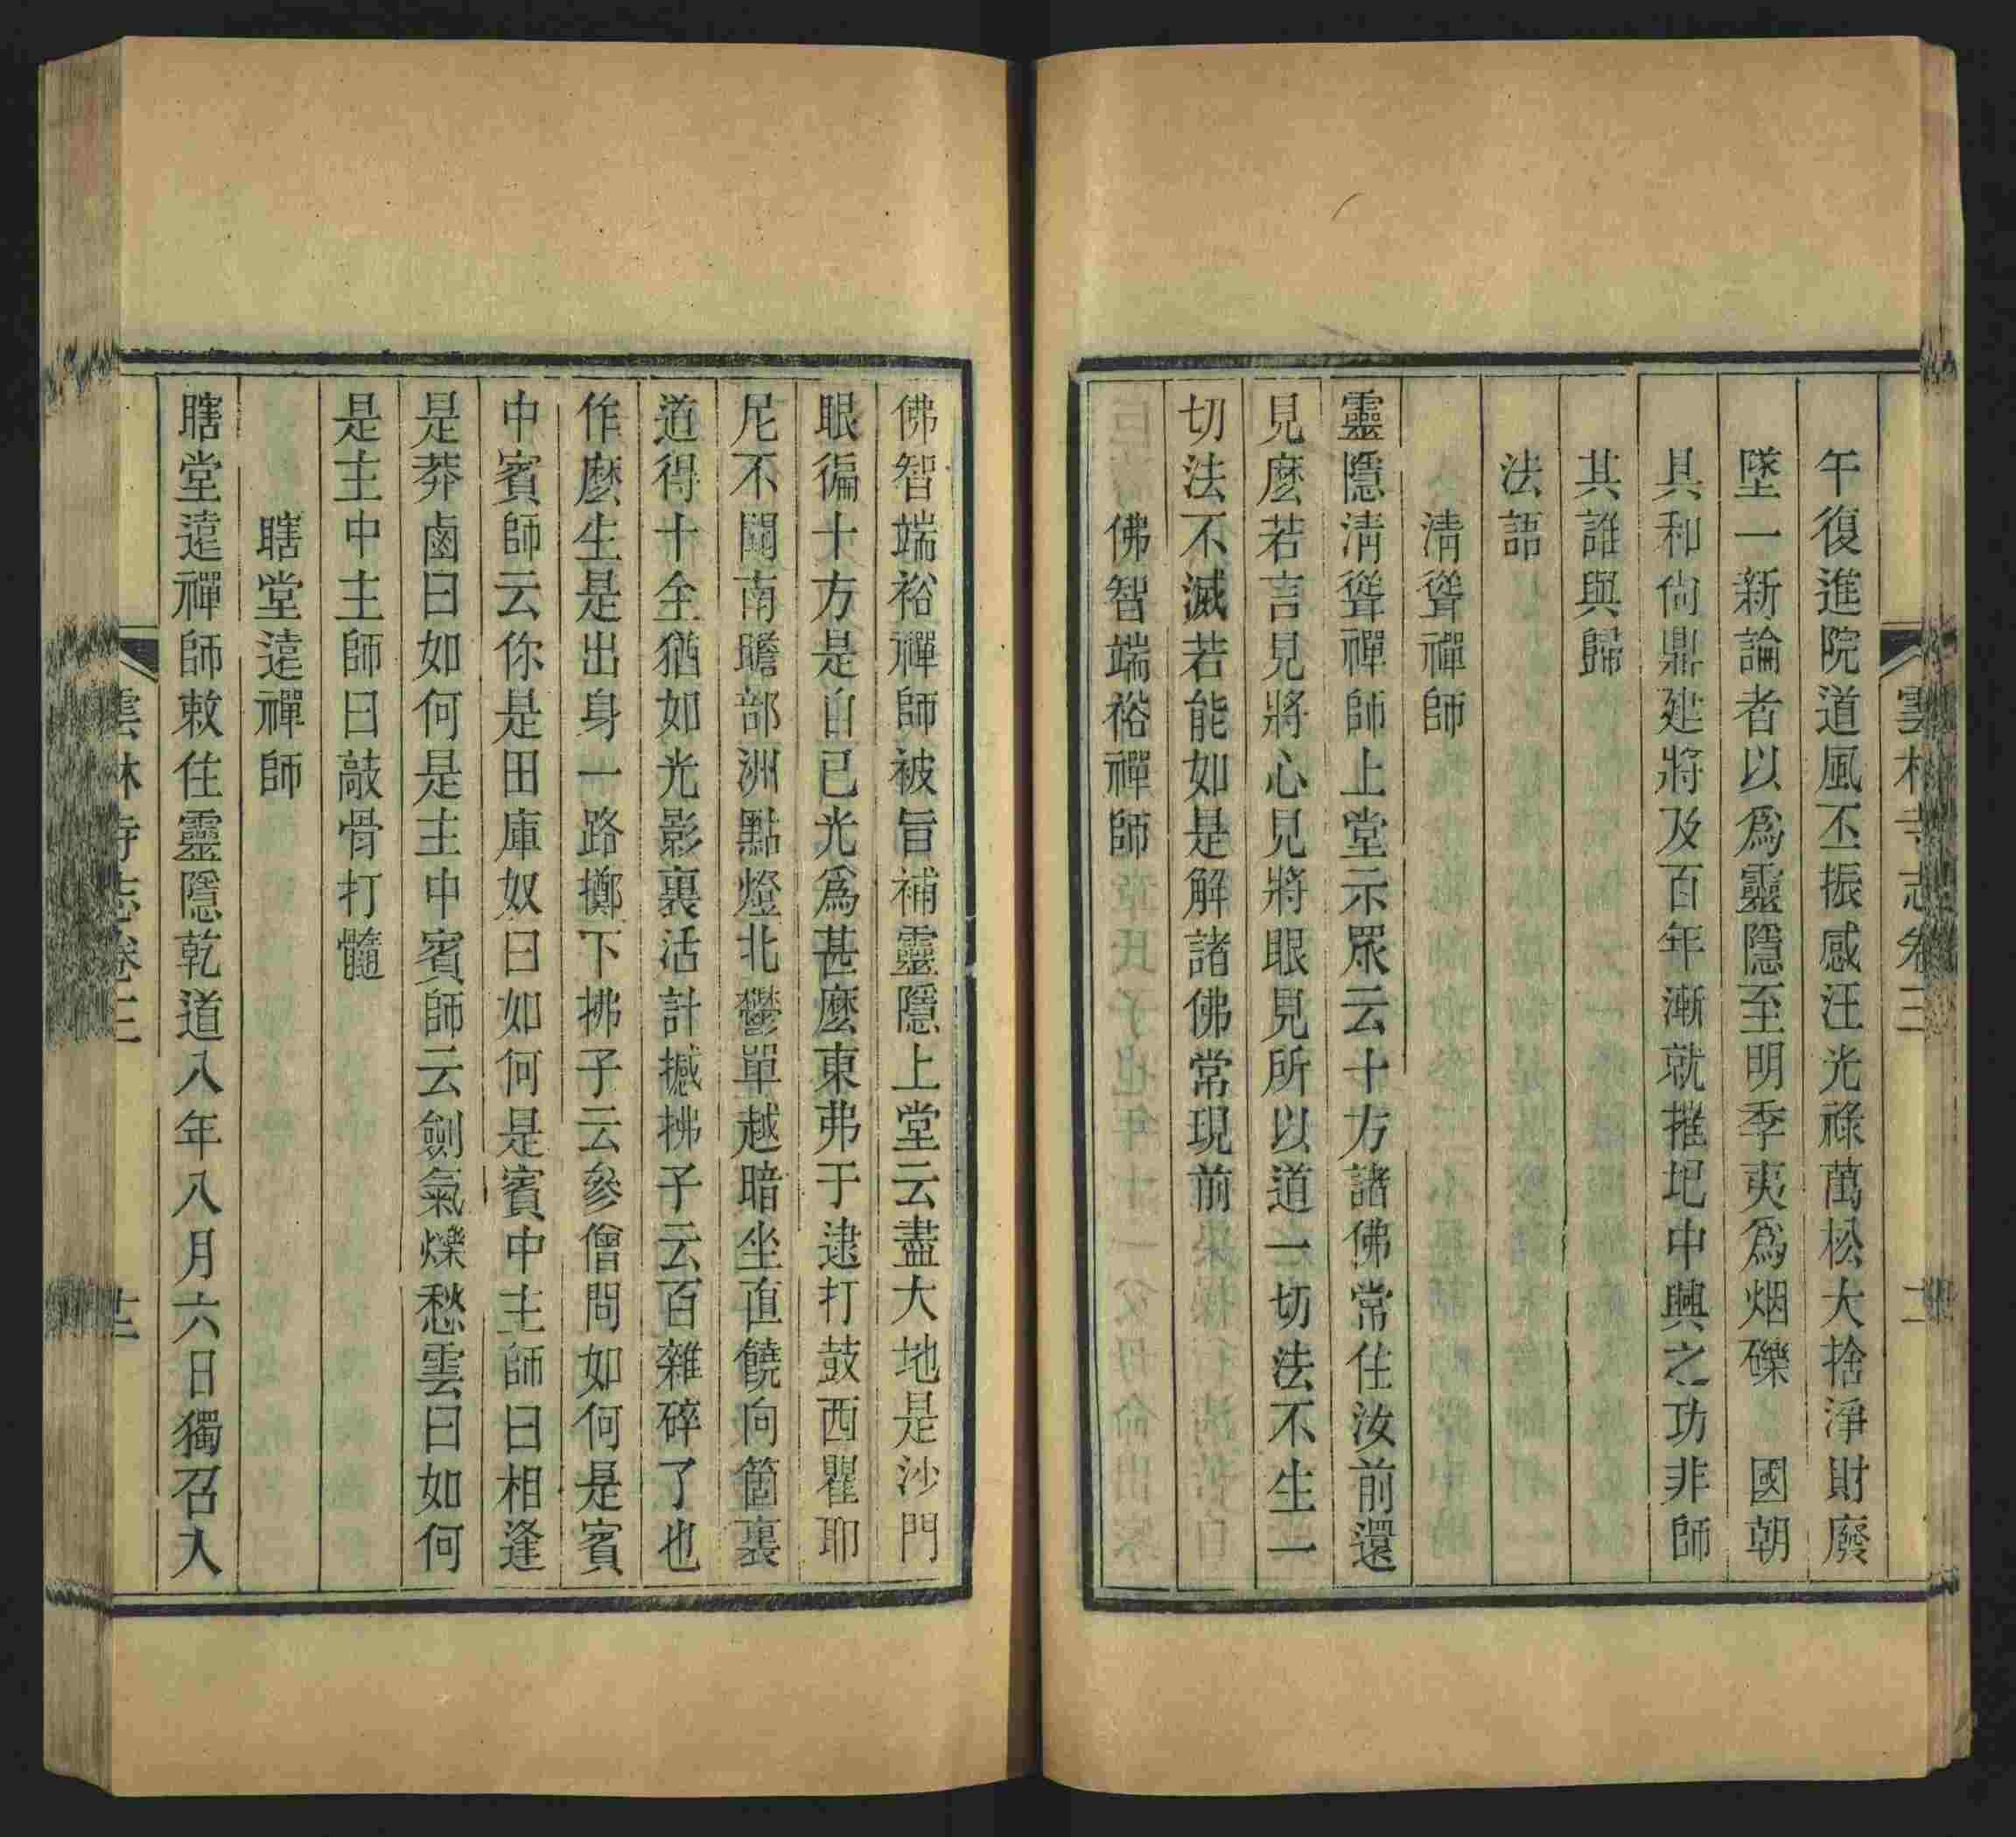 雲林寺志卷三
午復進院道風丕振感汪光祿萬松大捨淨財廢
墜一新論者以爲靈隱至明季夷爲烟礫 國朝
具和尙鼎建將及百年漸就摧圮中興之功非師
其誰與歸
法語
淸聳禪師
靈隱淸聳禪師上堂示眾云十方諸佛常住汝前還
見麼若言見將心見將眼見所以道一切法不生一
切法不滅若能如是解諸佛常現前
佛智端裕禪師
佛智端裕禪師被旨補靈隱上堂云盡大地是沙門
眼徧十方是自已光爲甚麼東弗于逮打鼓西瞿耶
尼不聞南贍部洲點燈北鬱單越暗坐直饒向箇裏
道得十全猶如光影裏活計撼拂子云百雜碎了也
作麼生是出身一路擲下拂子云參僧問如何是賓
中賓師云你是田庫奴曰如何是賓中主師曰相逢
是莽鹵曰如何是主中賓師云劍氣爍愁雲曰如何
是主中主師曰敲骨打髓
瞎堂遠禪師
瞎堂遠禪師敕住靈隱乾道八年八月六日獨召入
雲林寺志卷三